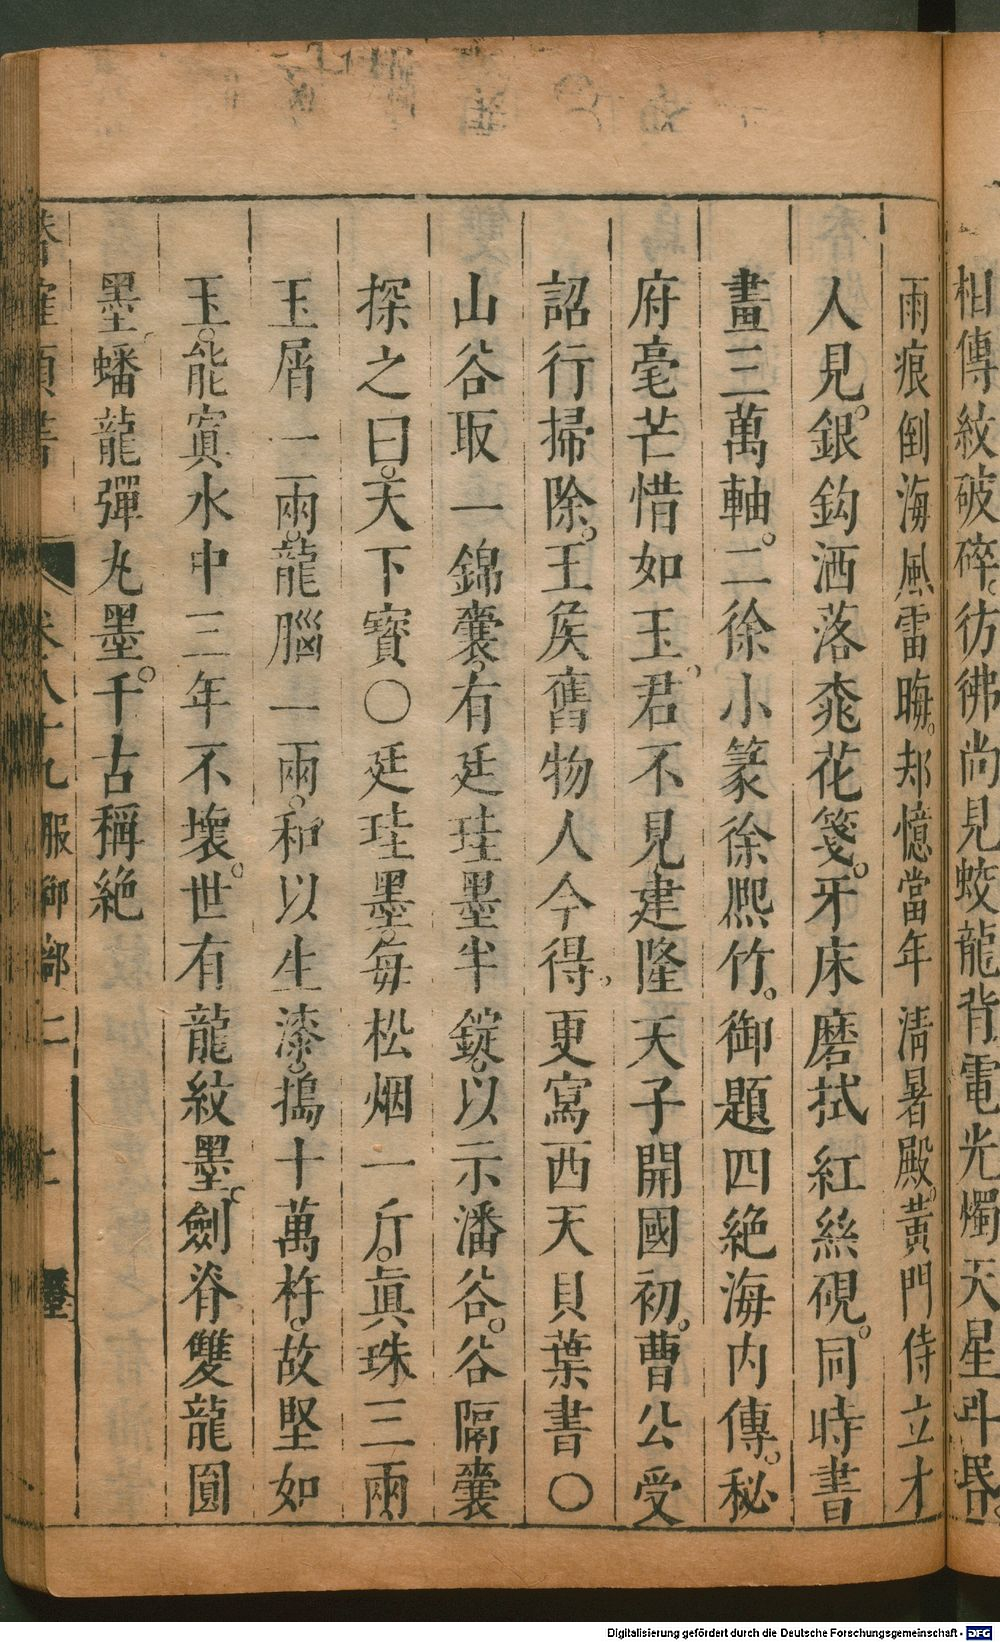 相傳紋破碎彷彿尚見蛟龍背電光燭天星斗昏
雨痕倒海風雷晦却憶當年清暑殿黃門侍立才
人見銀鈎洒落桃花箋牙床磨拭紅絲硯同時書
畫三萬軸二徐小篆徐熈竹御題四絶海內傳秘
府毫芒惜如玉君不見建隆天子開國初曹公受
詔行掃除王矦舊物人今得更寫西天貝葉書〇
山谷取一錦囊有廷珪墨半錠以示潘谷谷隔囊
探之曰天下寳〇廷珪墨每松烟一斤眞珠三兩
玉屑一兩龍腦一兩和以生漆搗十萬杵故堅如
玉能寘水中三年不壞世有龍紋墨劍脊雙龍圓
墨蟠龍彈丸墨千古稱絶
卷八十九 服御部二 墨
Digitalisierung gefördert durch die Deutsche Forschungsgemeinschaft - DFG